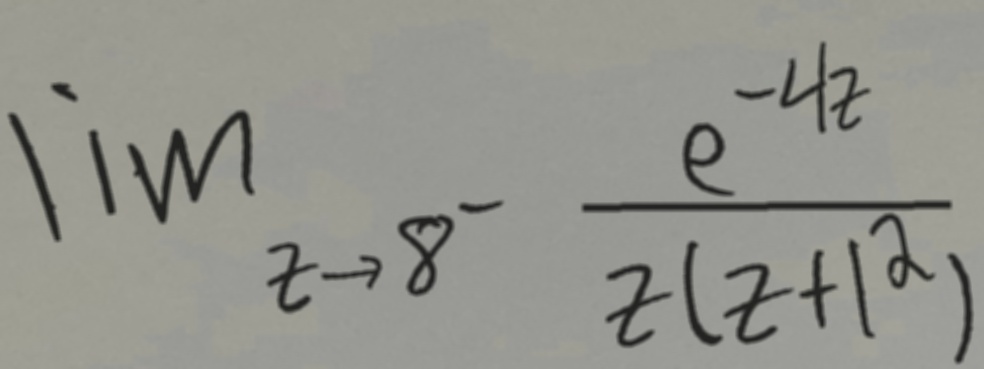 \lim_{z \to 8^-} \frac{e^{-4z}}{z(z+1^2)}